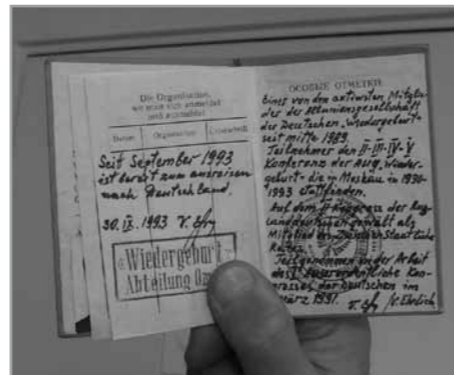 Die Organisation,
wo man sich anmeldet
und abmeldet
Datum Organisation Unterschrift
Seit September 1993
ist bereit zum ausreisen
nach Deutschland.
30.IX.1993
«Wiedergeburt
Abteilung
ОСОБЫЕ ОТМЕТКИ
Eines von den aktivsten Mitglie-
der der Allunionsgesellschaft
der Deutschen „Wiedergeburt"-
seit mitte 1989.
Teilnehmer der II-III-IV-V
Konferenz der "Wieder-
geburt"- die in Moskau in 1990-
1993 stattfinden.
Auf dem II Kongress der
landdeutschen gewält als
Mitglied des Staatliche
Rates.
Teilgenommen in der Arbeit
des I Ausserordentliche Kon-
gresses der Deutschen im
März 1991. /V. Ehrlich